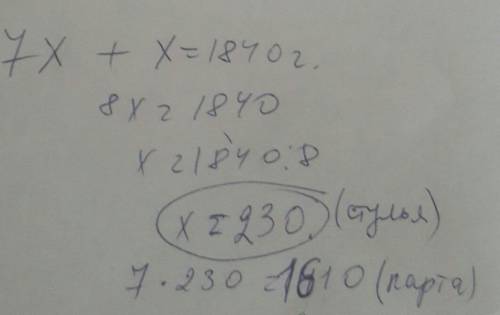 7x + x = 1840г.
8x = 1840
x = 1840:8
x = 230. (стулья)
7·230 = 1610 (парта)